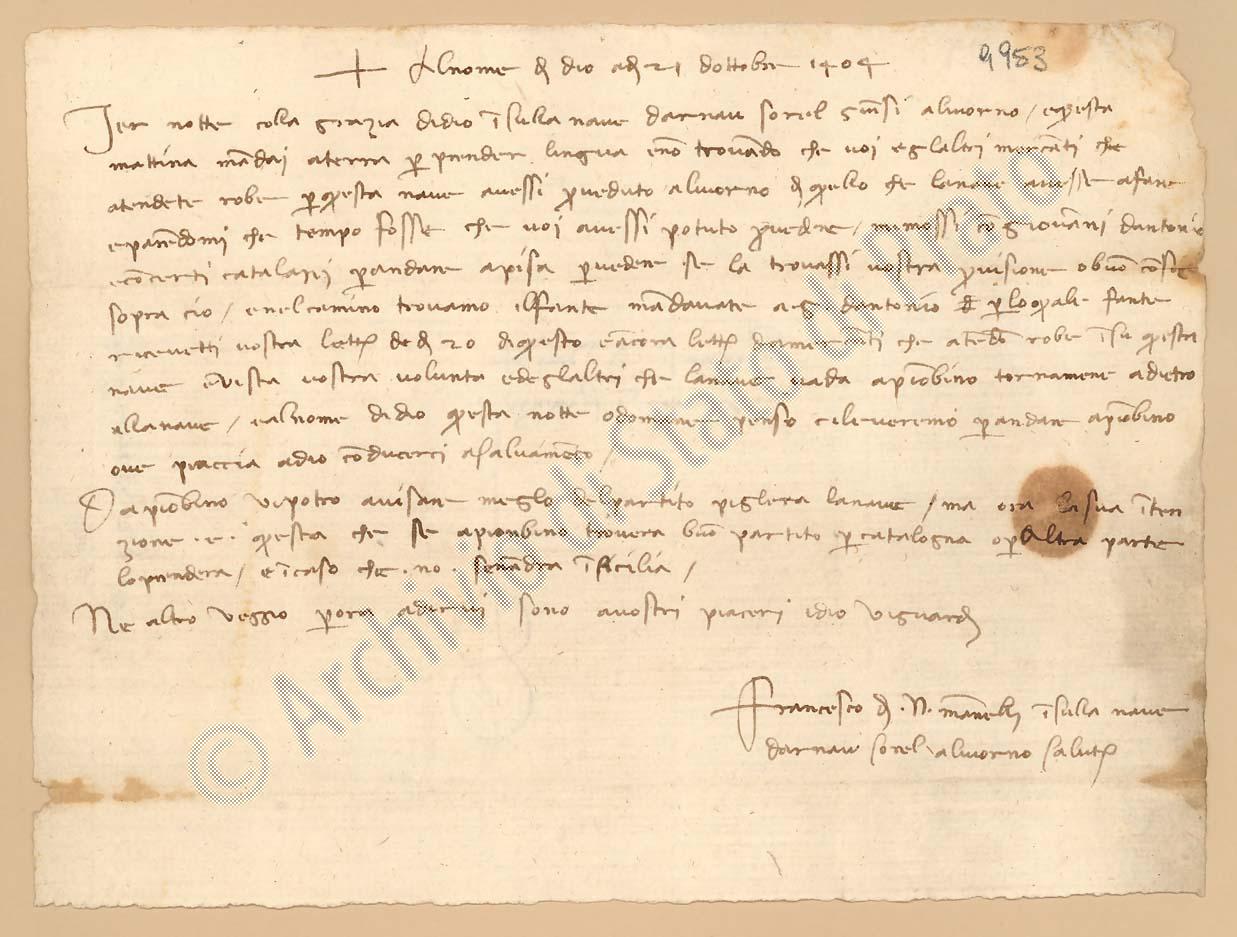 + Al nome di dio adi 21 dottobre 1404
9953
Jer notte colla grazia didio in sulla nave darnau sorel giunsi alivorno / e questa
mattina mandai aterra per prender lingua e non trovando che voi e glaltri mercanti che
atendete robe per questa nave avessi proveduto alivorno di quello che la nave avesse afare
e parendomi che tempo fosse che voi avessi potuto provedere / mi mossi con giovanni dantonio
e con certi catalani per andare apisa per vedere se la trovassi vostra provisione o buon
sopra cio / e nel camino trovamo il fante mandavate a g dantonio per lo quale fante
ricevetti vostra lettera de di 20 di questo e ancora lettera da mercanti che atendono robe in su questa
nave e vista vostra volunta e deglaltri che la nave vada a piombino tornamene adietro
alla nave / e al nome di dio questa notte o domane penso ci leveremo per andare a piombino
ove piaccia adio conducerci asalvamento /
Da piombino vi potro avisare meglo del partito piglera la nave / ma ora la sua inten
zione . e . questa che se a pionbino trovera buon partito per catalogna o per altra parte
lo prendera / e in caso che . no . senandra in sicilia /
Ne altro veggio per ora adirvi sono avostri piaceri idio vi guardi
Francesco di . N . mannelli in sulla nave
darnau sorel alivorno salute
© Archivio di Stato di Prato